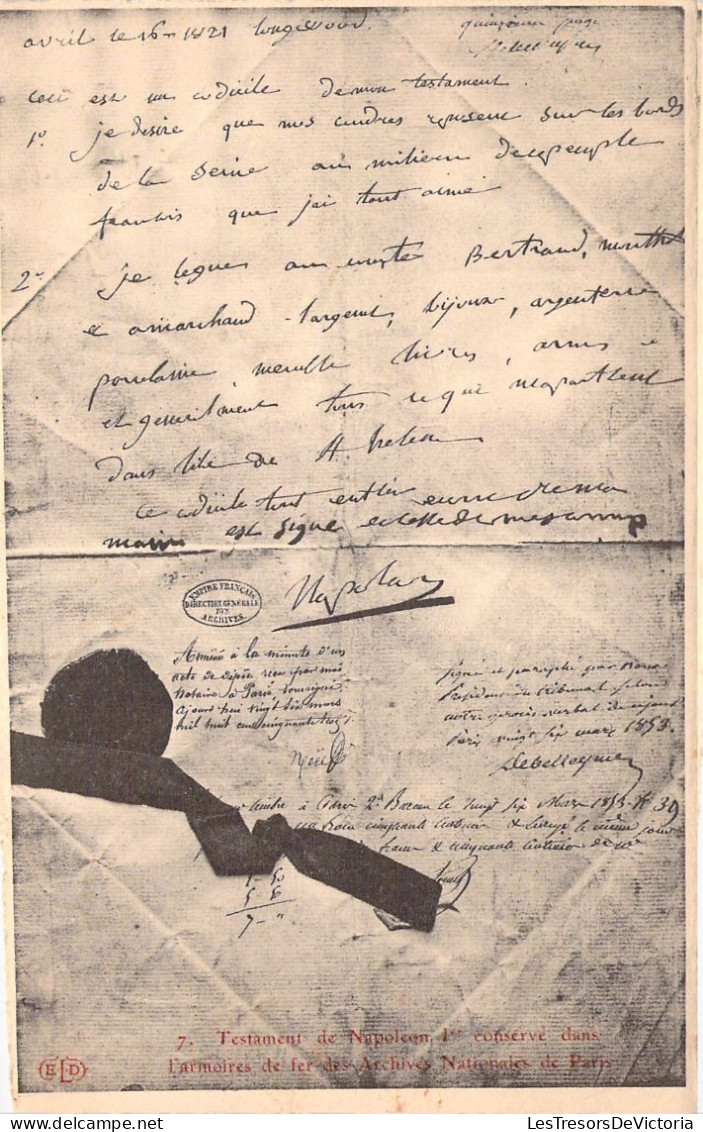 avril le 16 1821 longwood.
quinzieme page
ceci est un codicile de mon testament
1º je desire que mes cendres reposent sur les bords
de la Seine au milieu de ce peuple
francais que jai tant aimé
2º je legue au comte Bertrand, montholon
et a marchand l'argent, bijoux, argenterie
porcelaine, meuble livres, armes
et generalment tous ce qui m'apartient
dans lile de St helene
ce codicile tout entier ecrit de ma
main est signé et
Napoleon
EMPIRE FRANÇAIS
DIRECTION GÉNÉRALE
DES
ARCHIVES
Annexé à la minute d'un
acte de dépôt recu par moi
Notaire à Paris soussigné,
ajourd'hui vingt six mars
mil huit cent cinquante trois
signé et paraphé par nous
Président du tribunal selon
notre procès verbal de ce jour
Paris vingt six mars 1853.
Debelleyme
à Paris 2e Bureau le vingt six Mars 1853
cinquante centimes le même jour
francs & cinquante centimes
1-50
5-50
7-"
7. Testament de Napoleon 1er conservé dans
l'armoires de fer des Archives Nationales de Paris
ELD
LesTresorsDeVictoria.com